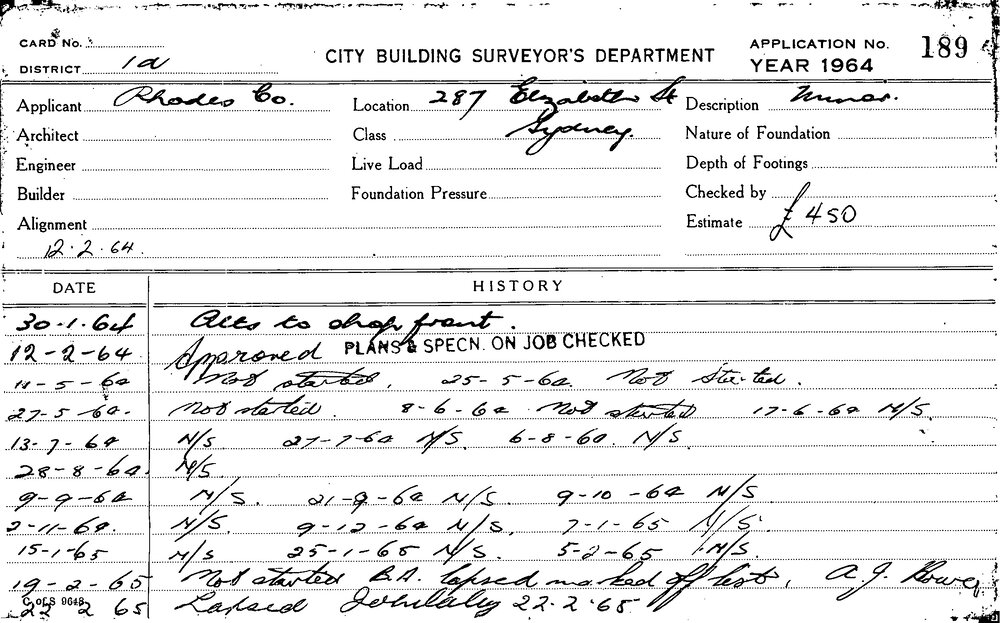 CARD No.
DISTRICT 1a
CITY BUILDING SURVEYOR'S DEPARTMENT
APPLICATION No. 189
YEAR 1964
Applicant Rhodes Co.
Location 287 Elizabeth St
Sydney.
Description Minor.
Architect
Class
Nature of Foundation
Engineer
Live Load
Depth of Footings
Builder
Foundation Pressure
Checked by
Alignment
Estimate £450
12.2.64.
DATE HISTORY
30.1.64 Alts to shop front.
12-2-64 Approved PLANS & SPECN. ON JOB CHECKED
11-5-64 Not started. 25-5-64. Not Started.
27-5-64. Not started. 8-6-64 Not started 17-6-64 N/S.
13-7-64 N/S. 27-7-64 N/S. 6-8-64. N/S.
28-8-64. N/S.
9-9-64 N/S. 21-9-64 N/S. 9-10-64 N/S
2-11-64. N/S. 9-12-64 N/S. 7-1-65 N/S.
15-1-65 N/S 25-1-65 N/S. 5-2-65 N/S.
19-2-65 Not started B.A. lapsed marked off list. A.J.
C of S 9648
22 2 65 Lapsed 22.2.65